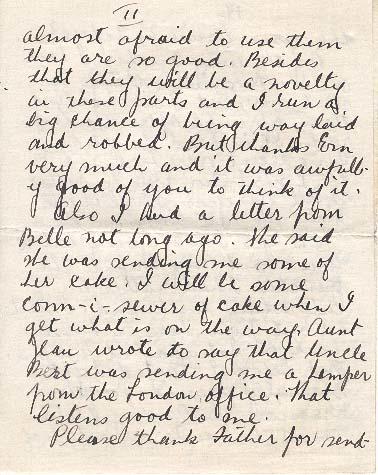 II
almost afraid to use them
they are so good. Besides
that they will be a novelty
in these parts and I run a
big chance of being way laid
and robbed. But thanks Ern
very much and it was awfull-
y good of you to think of it.
Also I had a letter from
Belle not long ago. She said
she was sending me some of
her cake. I will be some
conn-i-sewer of cake when I
get what is on the way. Aunt
Jean wrote to say that Uncle
Bert was sending me a hamper
from the London office. That
listens good to me.
Please thank Father for send-